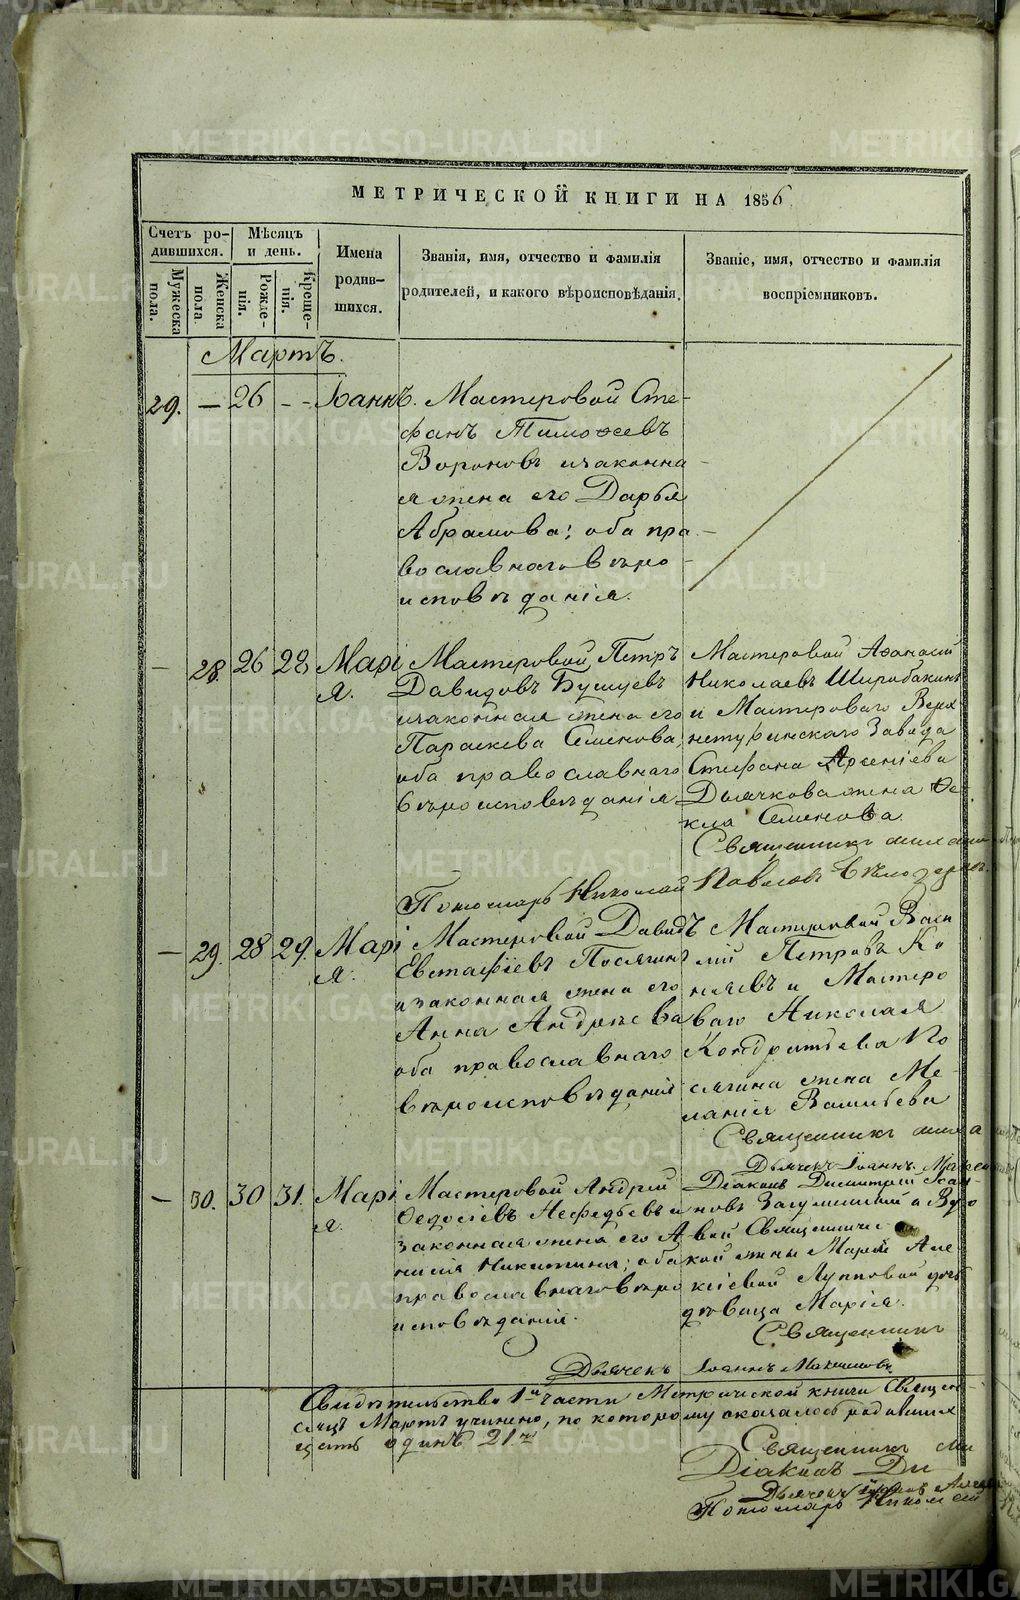 МЕТРИЧЕСКОЙ КНИГИ НА 1856
Счетъ ро-
дившихся.
Мужеска
пола.
Женска
пола
Мѣсяцъ
и день.
Рожде-
нія.
Креще-
нія.
Имена
родив-
шихся.
Званія, имя, отчество и фамилія
родителей, и какого вѣроисповѣданія.
Званіе, имя, отчество и фамилія
воспріемниковъ.
Мартъ.
29. — 26 - - Іоаннъ.
Мастеровой Сте-
фанъ Тимоѳеевъ
Вороновъ изаконна-
я жена его Дарья
Абрамова; оба пра-
вославнаго вѣро-
исповѣданія.
— 28 26 28 Марі
я.
Мастеровой Петръ
Давидовъ Бушуевъ
изаконная жена его
Параскева Семенова,
оба православнаго
вѣроисповѣданія
Мастеровой Аѳанасій
Николаевъ Ширабакинъ
и Мастероваго Верх
нетуринскаго Завода
Стефана Арсеніева
Дьячкова жена Ѳе-
кла Семенова.
Священникъ
Пономарь Николай Павловъ
— 29. 28 29. Марі
я.
Мастеровой Давидъ
Евстафіевъ Послягинъ
изаконная жена его
Анна Андрѣева
оба православнаго
вѣроисповѣданія
Мастеровой Васи
лій Петровъ Ко
няевъ и Мастеро
ваго Николая
Кондратьева По
слягина жена Ме-
ланія Васильева
Священникъ
Дьячекъ Іоаннъ
— 30. 30 31. Марі
я.
Мастеровой Андрей
Ѳедосіевъ Нефедьевъ и
законная жена его А
нисія Никитина; оба
православнаго вѣро
исповѣданія.
Діаконъ Димитрій Іоан-
новъ
вой Священниче
ской жены Маріи Але-
ксіевой Лупповой дочь
дѣвица Марія.
Священникъ
Дьячекъ Іоаннъ
Свидѣтельство 1й части Метрической книги
сяцъ Мартъ учинено, по которому оказалось родивших
цать одинъ 21.
Священникъ
Діаконъ Ди
Дьячекъ Іоаннъ
Пономарь Николай
METRIKI.GASO-URAL.RU